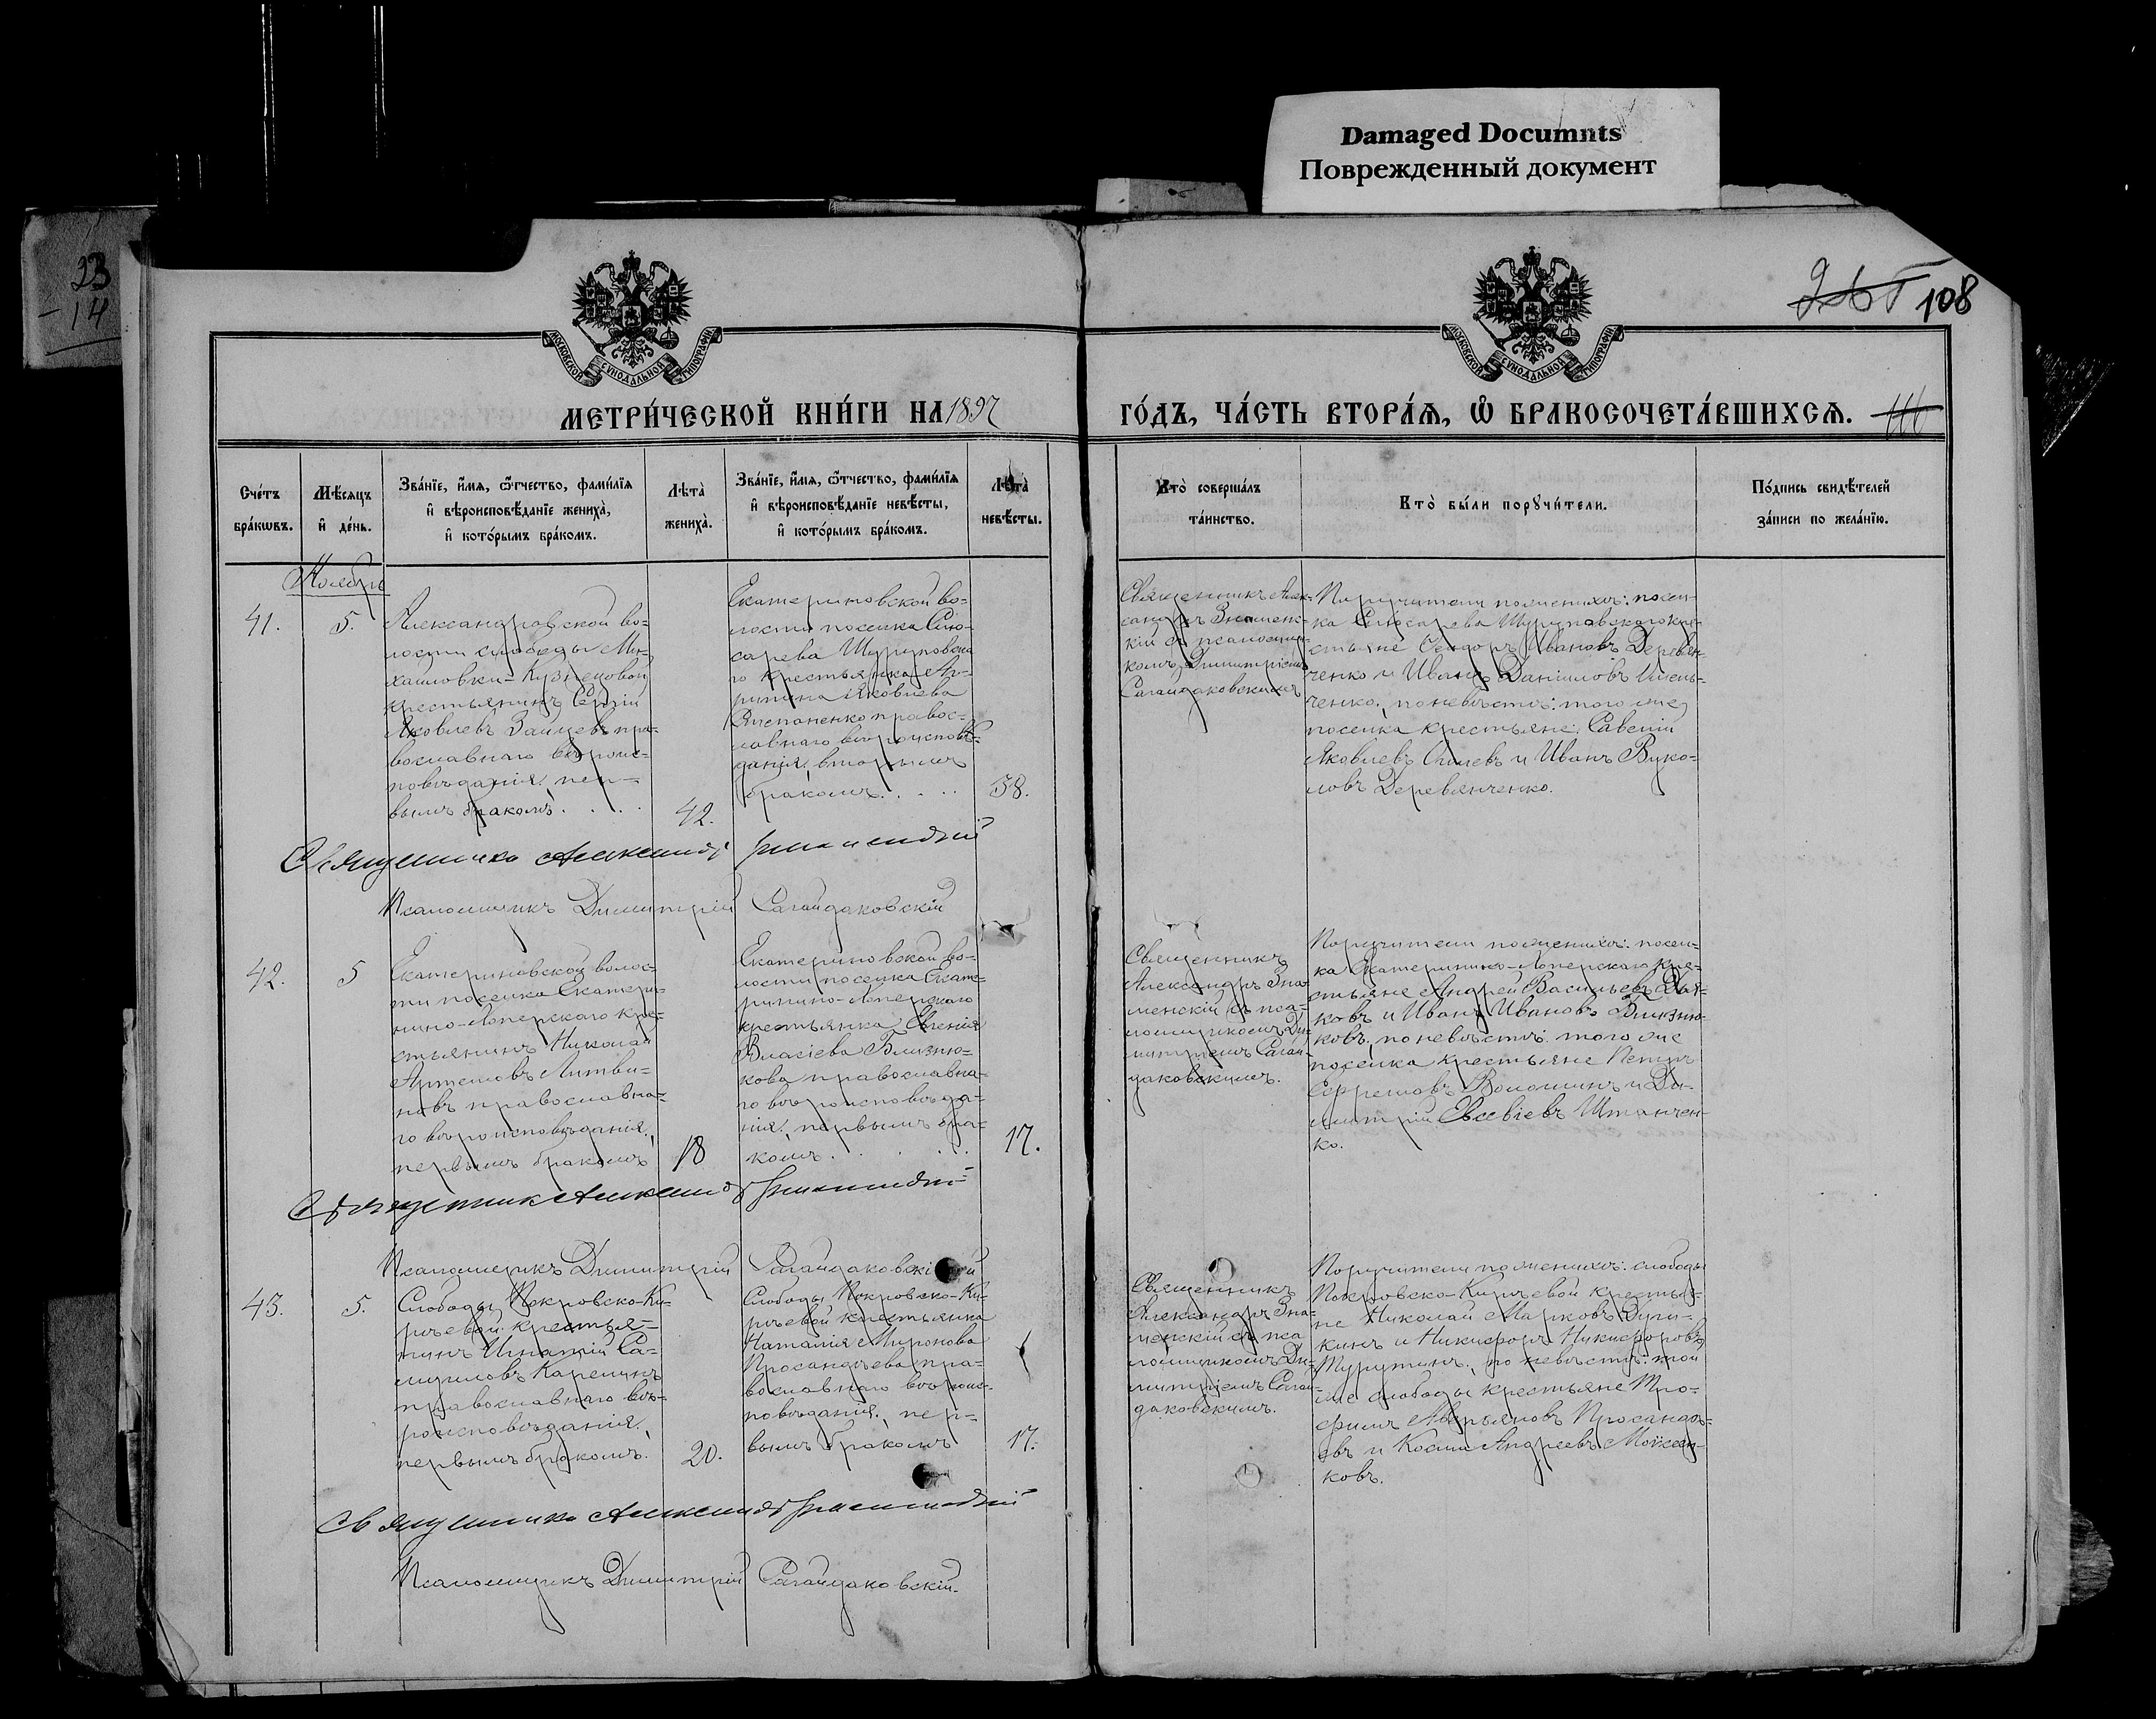 Damaged Documnts
Поврежденный документ
23
- 14
108
МОСКОВСКОЙ СѴНОДАЛЬНОЙ ТИПОГРАФІИ
МОСКОВСКОЙ СѴНОДАЛЬНОЙ ТИПОГРАФІИ
МЕТРИ́ЧЕСКОЙ КНИ́ГИ НА 1897
ГО́ДЪ, ЧА́СТЬ ВТОРА́Я, Ѽ БРАКОСОЧЕТА́ВШИХСЯ.
Сче́тъ
бра́кѡвъ.
Мѣ́сяцъ
и҆ де́нь.
Зва́нїе, и҆́мя, ѻ҆́тчество, фами́лїя
и҆ вѣроисповѣ́данїе жениха̀,
и҆ кото́рымъ бра́комъ.
Лѣта̀
жениха̀.
Зва́нїе, и҆́мя, ѻ҆́тчество, фами́лїя
и҆ вѣроисповѣ́данїе невѣ́сты,
и҆ кото́рымъ бра́комъ.
Лѣта̀
невѣ́сты.
Кто̀ соверша́лъ
та́инство.
Кто̀ бы́ли порꙋчи́тели.
По́дпись свидѣ́телей
за́писи по жела́нїю.
Ноябрь
41.
5.
Александровской во-
лости слободы Ми-
хайловки-Кузнецовой
крестьянинъ Сергій
Яковлевъ Зайцевъ пра-
вославнаго вѣроис-
повѣданія, пер-
вымъ бракомъ. . . .
42.
Екатериновской во-
лости поселка Слю-
сарева Щуриновска
го крестьянка Аг-
рипина Яковлева
Степаненко правос-
лавнаго вѣроисповѣ-
данія, вторымъ
бракомъ. . . .
38.
Священникъ Алек-
сандръ Знаменс-
кій съ псаломщи-
комъ Димитріемъ
Сагайдаковскимъ
Поручители по женихѣ: посел-
ка Слюсарева Щуриновскаго кре-
стьяне Ѳеодоръ Ивановъ Деревян-
ченко и Иванъ Даниловъ
ченко, по невѣстѣ: того же
поселка крестьяне: Савелій
Яковлевъ и Иванъ Вуко-
ловъ Деревянченко.
Священникъ Александръ Знаменскій
Псаломщикъ Димитрій Сагайдаковскій
42.
5
Екатериновской волос-
ти поселка Екатери-
нино-Хоперскаго кре-
стьянинъ Николай
Артемовъ Литви-
новъ православна-
го вѣроисповѣданія,
первымъ бракомъ
18
Екатериновской во-
лости поселка Екате-
ринино-Хоперскаго
крестьянка Евгенія
Власіева Близню-
кова православна-
го вѣроисповѣда-
нія, первымъ бра-
комъ. . . . . .
17.
Священникъ
Александръ Зна-
менскій съ пса-
ломщикомъ Ди-
митріемъ Сагай-
даковскимъ.
Поручители по женихѣ: посел-
ка Екатеринино-Хоперскаго кре-
стьяне Андрей Васильевъ
ковъ и Иванъ Ивановъ Близню-
ковъ, по невѣстѣ: того же
поселка крестьяне Петръ
Ефремовъ Волошинъ и Ди-
митрій Евсевіевъ Штанчен-
ко.
Священникъ Александръ Знаменскій
Псаломщикъ Димитрій Сагайдаковскій
43.
5.
Слободы Покровско-Ки-
рѣевой крестья-
нинъ Игнатій Са-
муиловъ Карецинъ
православнаго вѣ-
роисповѣданія,
первымъ бракомъ.
20.
Слободы Покровско-Ки-
рѣевой крестьянка
Наталія Миронова
Просандѣева пра-
вославнаго вѣроис-
повѣданія, пер-
вымъ бракомъ
17.
Священникъ
Александръ Зна-
менскій съ пса
ломщикомъ Ди-
митріемъ Сагай-
даковскимъ.
Поручители по женихѣ: слободы
Покровско-Кирѣевой крестья-
не Николай Марковъ Дури-
кинъ и Никифоръ Никифоровъ
Турутинъ, по невѣстѣ: той
же слободы крестьяне Тро-
фимъ Аверьяновъ Просандѣ-
евъ и Косма Андреевъ Моисеен-
ковъ.
Священникъ Александръ Знаменскій
Псаломщикъ Димитрій Сагайдаковскій.